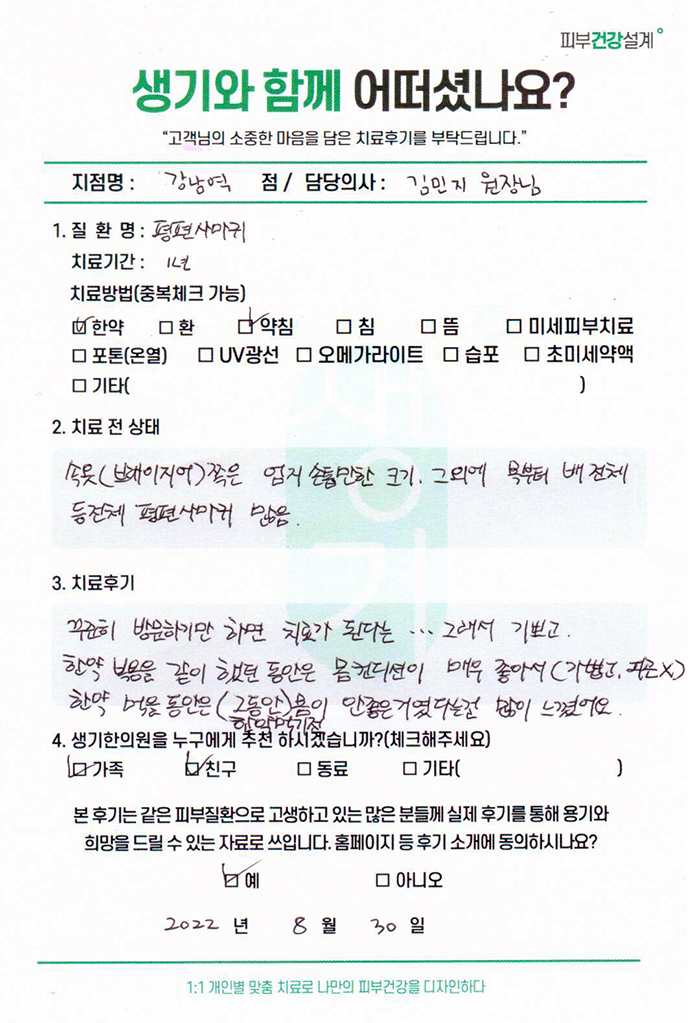 피부건강설계
생기와 함께 어떠셨나요?
“고객님의 소중한 마음을 담은 치료후기를 부탁드립니다.”
지점명 : 강남역 점 / 담당의사 : 김민지 원장님
1. 질 환 명 : 평편사마귀
치료기간 : 1년
치료방법(중복체크 가능)
☑ 한약 ☐ 환 ☑ 약침 ☐ 침 ☐ 뜸 ☐ 미세피부치료
☐ 포톤(온열) ☐ UV광선 ☐ 오메가라이트 ☐ 습포 ☐ 초미세약액
☐ 기타( )
2. 치료 전 상태
속옷(브래이지어)쪽은 엄지 손톱만한 크기. 그외에 목부터 배전체
등전체 평편사마귀 많음.
생기
3. 치료후기
꾸준히 방문하기만 하면 치료가 된다는 ... 그래서 기쁘고.
한약 복용을 같이 했던 동안은 몸컨디션이 매우 좋아서 (가볍고, 피곤X)
한약 먹을 동안은 (그동안)몸이 안좋은거였다는걸 많이 느꼈어요.
한약먹기전
4. 생기한의원을 누구에게 추천 하시겠습니까?(체크해주세요)
☑ 가족 ☑ 친구 ☐ 동료 ☐ 기타( )
본 후기는 같은 피부질환으로 고생하고 있는 많은 분들께 실제 후기를 통해 용기와
희망을 드릴 수 있는 자료로 쓰입니다. 홈페이지 등 후기 소개에 동의하시나요?
☑ 예 ☐ 아니오
2022 년 8 월 30 일
1:1 개인별 맞춤 치료로 나만의 피부건강을 디자인하다